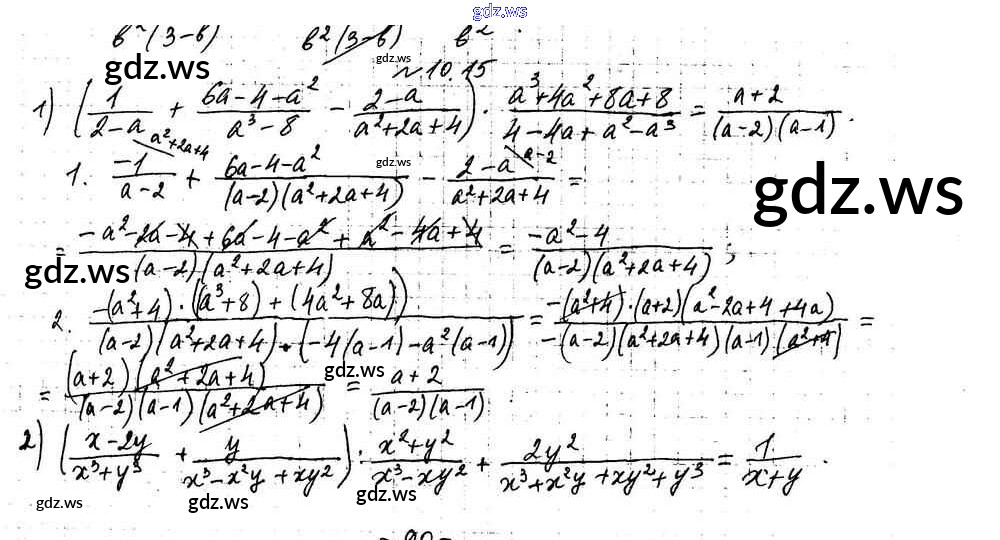 gdz.ws
в²(3-в) в²(3-в) в² .
gdz.ws gdz.ws
№10.15
1) (1/(2-a) + (6a-4-a²)/(a³-8) - (2-a)/(a²+2a+4)) · (a³+4a²+8a+8)/(4-4a+a²-a³) = (a+2)/((a-2)(a-1)) .
a²+2a+4 gdz.ws a-2
1. -1/(a-2) + (6a-4-a²)/((a-2)(a²+2a+4)) - (2-a)/(a²+2a+4) =
gdz.ws
= (-a²-2a-4+6a-4-a²+a²-4a+4)/((a-2)(a²+2a+4)) = (-a²-4)/((a-2)(a²+2a+4)) ;
gdz.ws
2. (-(a²+4)·((a³+8)+(4a²+8a)))/((a-2)(a²+2a+4)·(-4(a-1)-a²(a-1))) = (-(a²+4)·(a+2)(a²-2a+4+4a))/(-(a-2)(a²+2a+4)(a-1)(a²+4)) =
gdz.ws
= ((a+2)(a²+2a+4))/((a-2)(a-1)(a²+2a+4)) = (a+2)/((a-2)(a-1))
2) ((x-2y)/(x³+y³) + y/(x³-x²y+xy²)) · (x²+y²)/(x³-xy²) + 2y²/(x³+x²y+xy²+y³) = 1/(x+y) .
gdz.ws gdz.ws gdz.ws